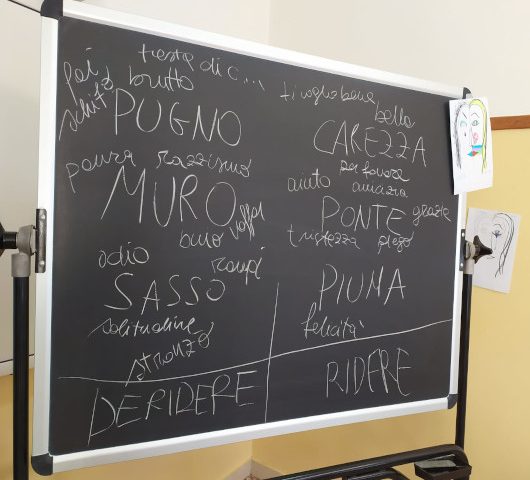 testa di c...
fai schifo brutto
PUGNO
paura razzismo
MURO
odio
SASSO
solitudine
stronzo
DERIDERE
ti voglio bene
bella
CAREZZA
per favore
aiuto amicizia
PONTE grazie
tristezza prego
PIUMA
felicità
RIDERE